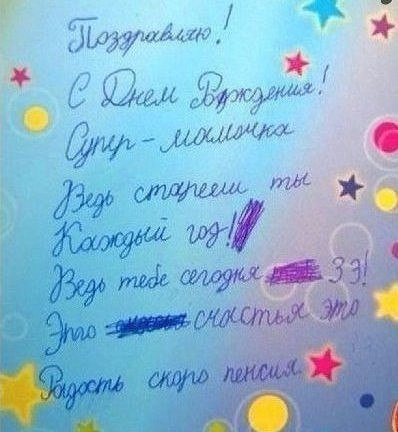 Поздравляю!
С Днем Рождения!
Супер-мамочка
Ведь стареем ты
Каждый год!
Ведь тебе сегодня 39!
Это счастья это
Радость скоро пенсия